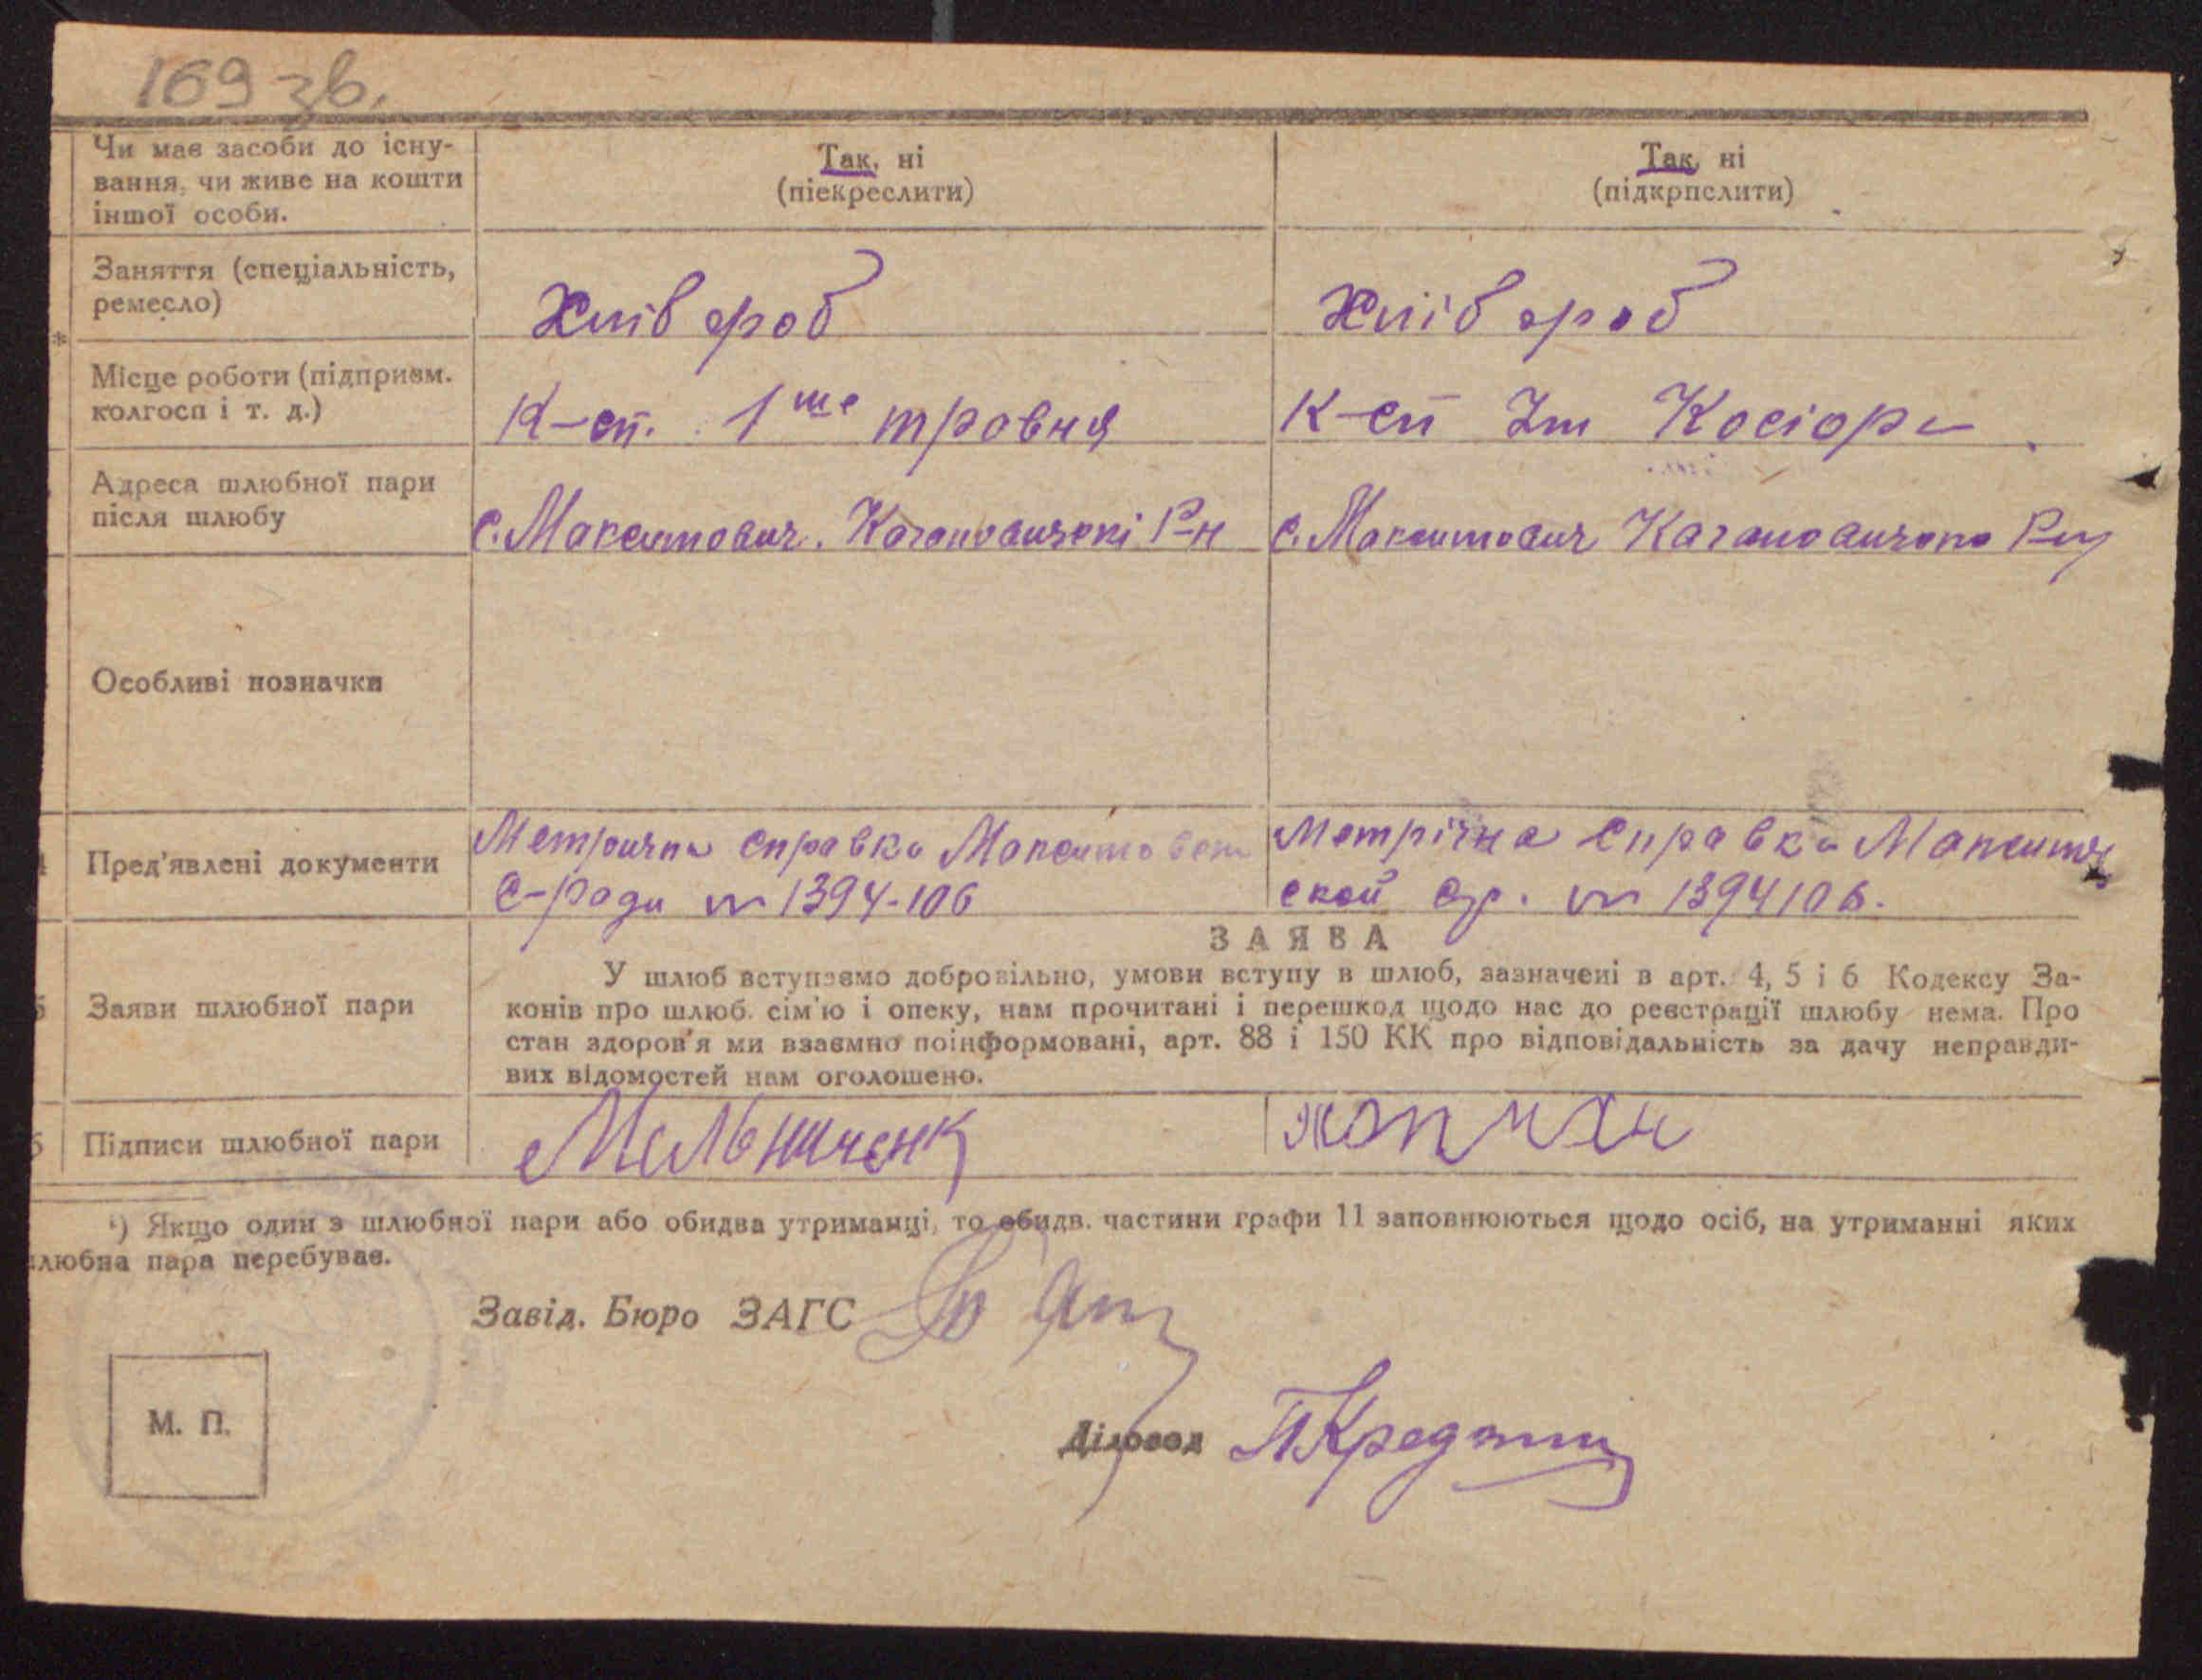 169 зв.
Чи має засоби до існу-
вання, чи живе на кошти
іншої особи.
Так, ні
(піекреслити)
Так, ні
(підкрпслити)
Заняття (спеціальність,
ремесло)
Хліб ороб
Хліб ороб
Місце роботи (підприєм.
колгосп і т. д.)
К-сп. 1 ше травня
К-сп Im Косіора
Адреса шлюбної пари
після шлюбу
с. Максимович. Кагановичскі Р-н
с. Максимович Кагановичско Р-н
Особливі позначки
Пред'явлені документи
Метрична справка Максимовск
С-Ради № 1394-106
Метрічна справка Максимов
ской с/р. № 1394106.
ЗАЯВА
Заяви шлюбної пари
У шлюб вступаємо добровільно, умови вступу в шлюб, зазначені в арт. 4, 5 і 6 Кодексу За-
конів про шлюб. сім'ю і опеку, нам прочитані і перешкод щодо нас до реєстрації шлюбу нема. Про
стан здоров'я ми взаємно поінформовані, арт. 88 і 150 КК про відповідальність за дачу неправди-
вих відомостей нам оголошено.
Підписи шлюбної пари
Мельниченк
¹) Якщо один з шлюбної пари або обидва утриманці, то обидв. частини графи 11 заповнюються щодо осіб, на утриманні яких
шлюбна пара перебуває.
Завід. Бюро ЗАГС
М. П.
Діловод